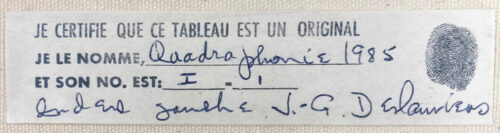 JE CERTIFIE QUE CE TABLEAU EST UN ORIGINAL
JE LE NOMME, Quadraphonie 1985
ET SON NO. EST: I - 1
J.-G. Deslauriers